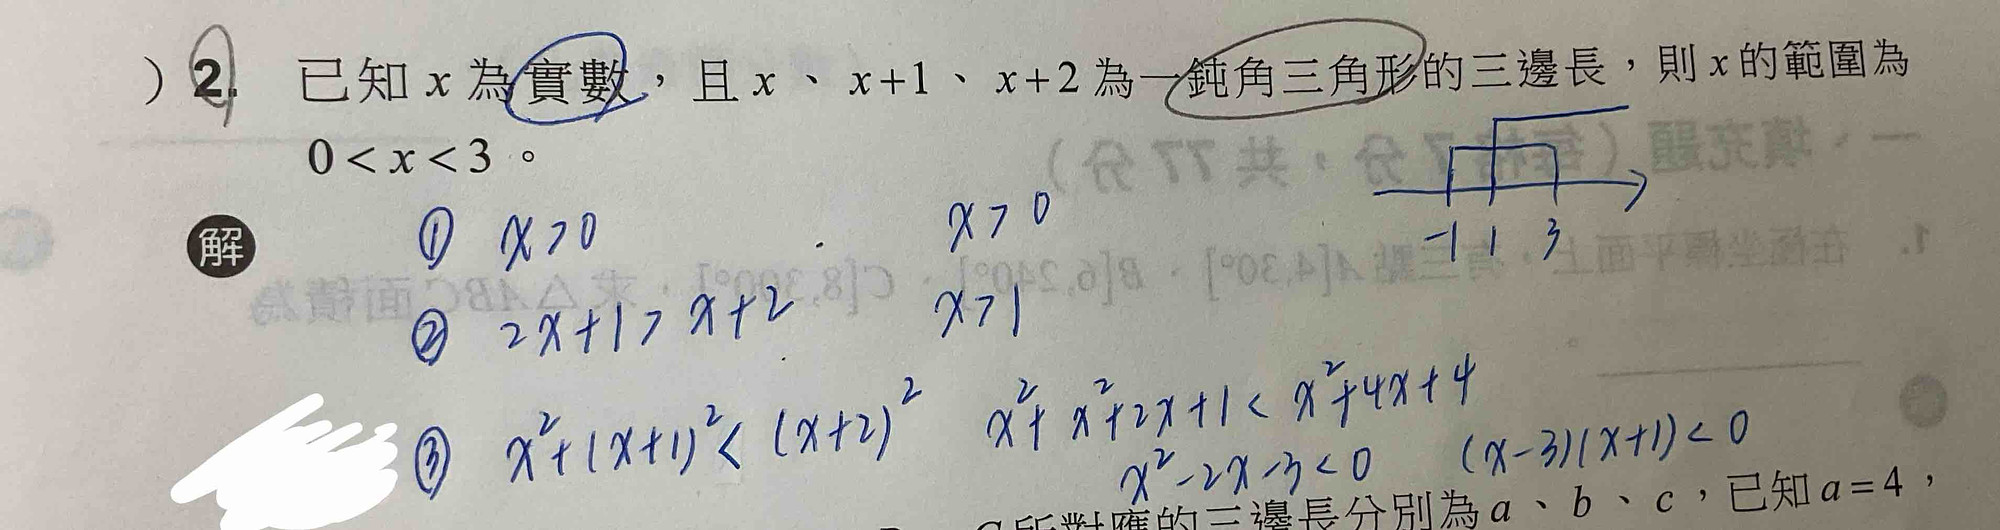 ) 2. 已知 x 為實數，且 x、x+1、x+2 為一鈍角三角形的三邊長，則 x 的範圍為
0<x<3。
解 ① x>0 x>0
-1 1 3
② 2x+1>x+2 x>1
③ x²+(x+1)²<(x+2)² x²+x²+2x+1<x²+4x+4
x²-2x-3<0 (x-3)(x+1)<0
所對應的三邊長分別為 a、b、c，已知 a=4，